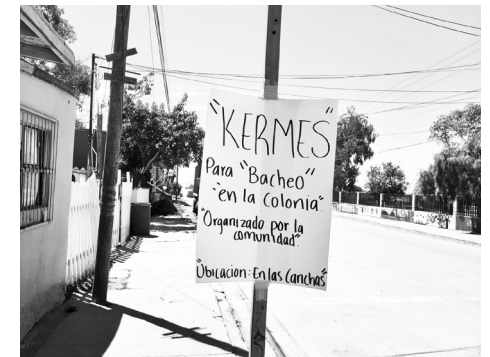 "KERMES"
Para "Bacheo"
"en la colonia".
"Organizado por la
comunidad".
"Ubicacion: En las Canchas"